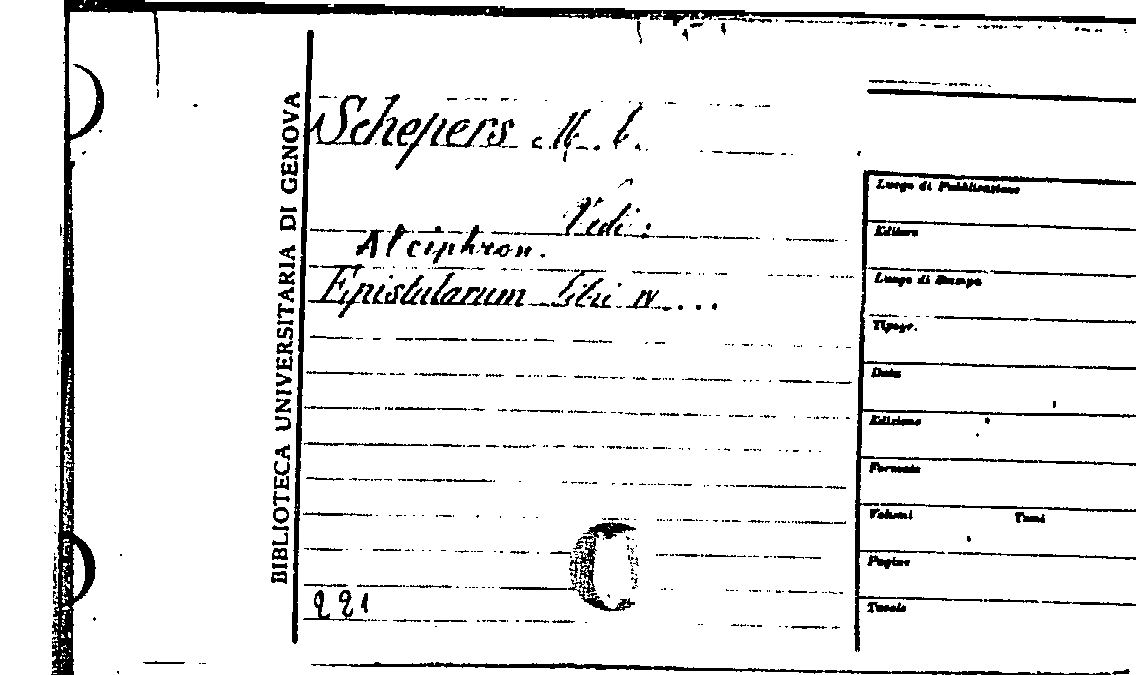 BIBLIOTECA UNIVERSITARIA DI GENOVA
Schepers M. L.
Vedi:
Alciphron.
Epistularum libri IV...
221
Luogo di Pubblicazione
Editore
Luogo di Stampa
Tipogr.
Data
Edizione
Formato
Volumi Tomi
Pagine
Tavole